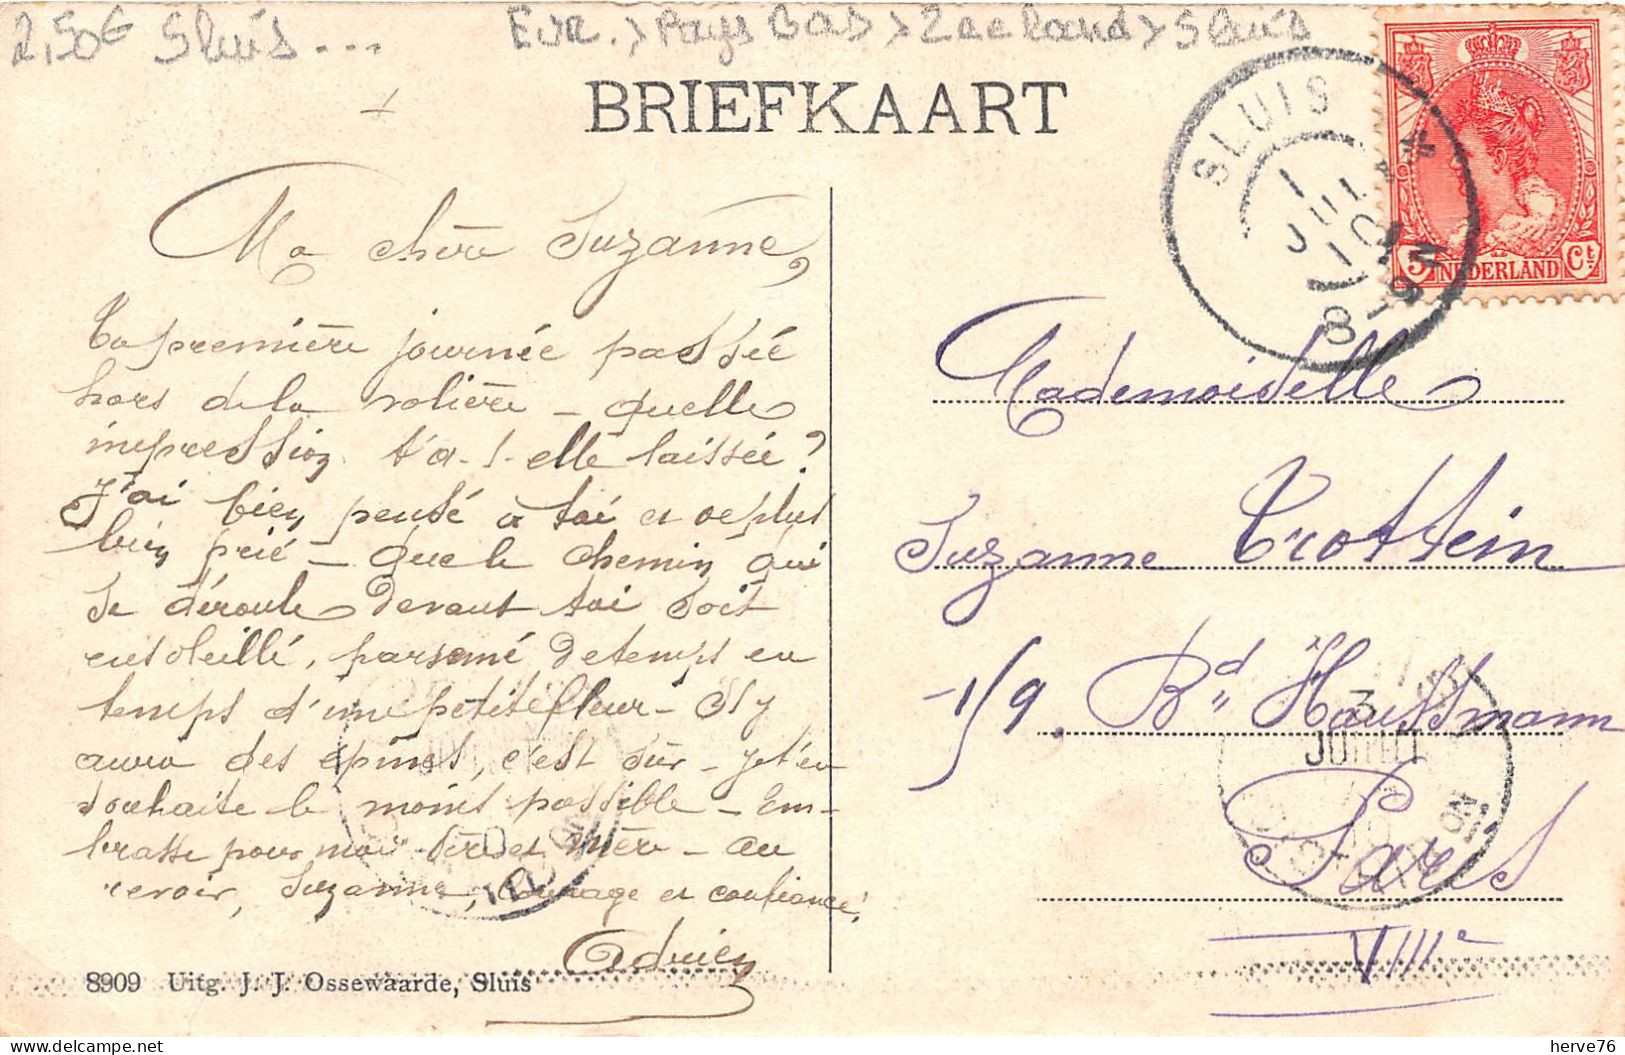 2,50€ Sluis ...
Eur. > Pays Bas > Zeeland > Sluis
BRIEFKAART
SLUIS
1 JUL 10
8-9 N
5 NEDERLAND Ct
Ma chère Suzanne,
Ta première journée passée
hors de la volière – quelle
impression t'a-t-elle laissée ?
J'ai bien pensé à toi et de plus
bien prié – que le chemin qui
se déroule devant toi soit
ensoleillé, parsemé de temps en
temps d'une petite fleur – S'il y
aura des épines, c'est sûr – je t'en
souhaite le moins possible – Em-
brasse pour moi Père et Mère – Au
revoir, Suzanne, courage et confiance!
Adrien
8909 Uitg. J. J. Ossewaarde, Sluis
Mademoiselle
Suzanne Trottein
119. Bd Haussmann
Paris
VIIIe
3
JUIL
herve76